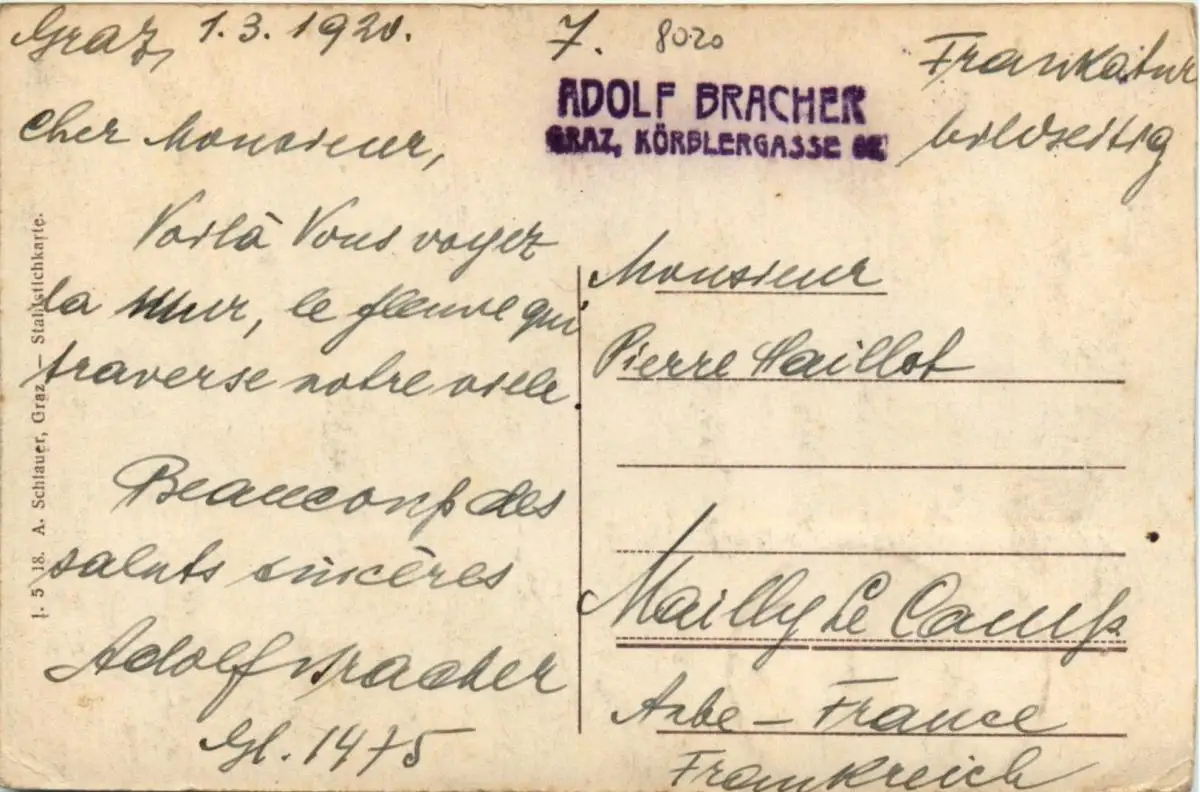 Graz, 1.3.1920.
7.
8020
Frankatur
bildseitig
ADOLF BRACHER
GRAZ, KÖRBLERGASSE
Cher Monsieur,
Voilà Vous voyez
la Mur, le fleuve qui
traverse notre ville.
Beaucoup des
saluts sincères
Adolf Bracher
Gl. 1475
Monsieur
Pierre Haillot
Mailly Le Camp
Aube – France
Frankreich
1. 5 18. A. Schlauer, Graz. — Stahlstichkarte.